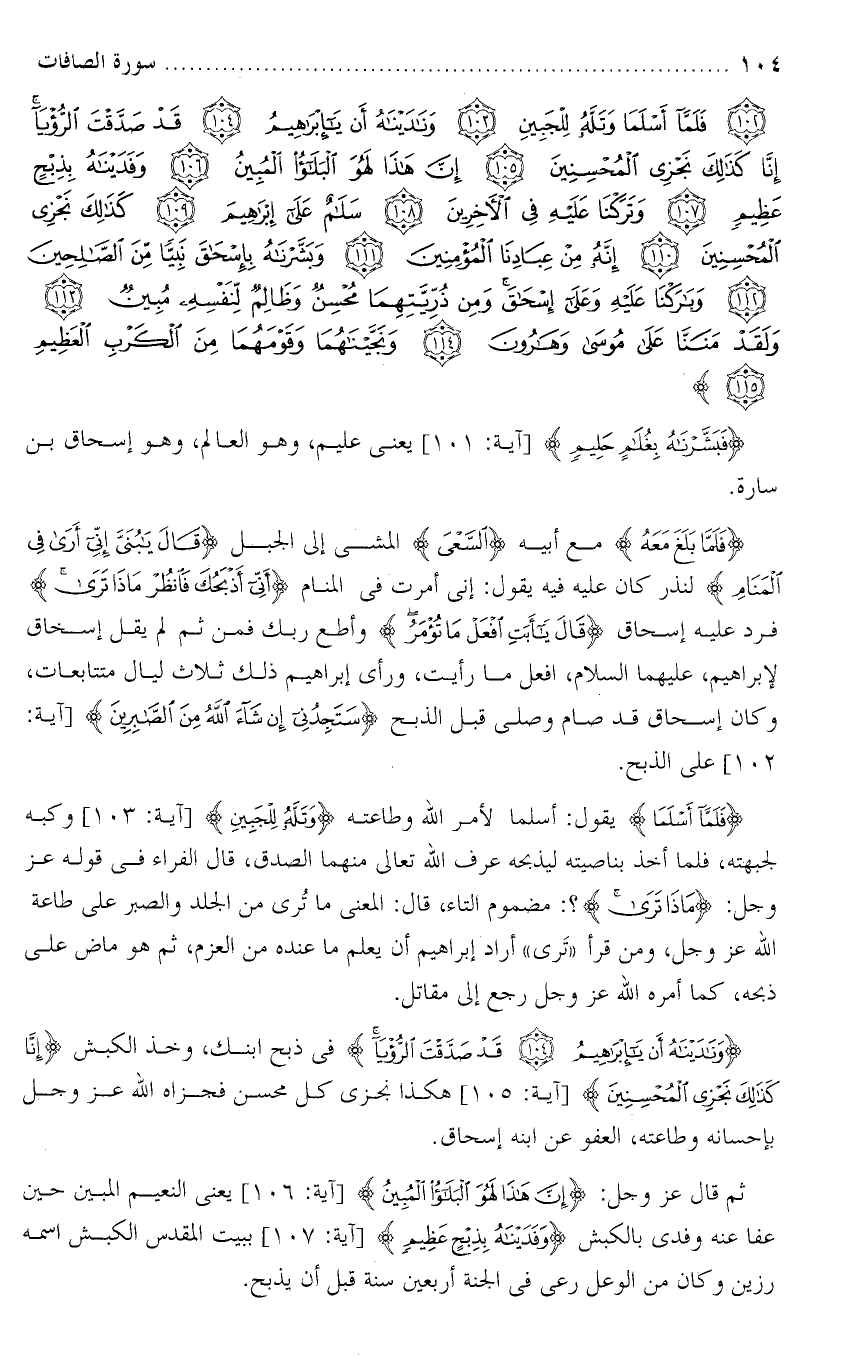 ١٠٤ ........................................................................ سورة الصافات
﴿١٠٢﴾ فَلَمَّآ أَسْلَمَا وَتَلَّهُۥ لِلْجَبِينِ ﴿١٠٣﴾ وَنَٰدَيْنَٰهُ أَن يَٰٓإِبْرَٰهِيمُ ﴿١٠٤﴾ قَدْ صَدَّقْتَ ٱلرُّءْيَآۚ
إِنَّا كَذَٰلِكَ نَجْزِى ٱلْمُحْسِنِينَ ﴿١٠٥﴾ إِنَّ هَٰذَا لَهُوَ ٱلْبَلَٰٓؤُا۟ ٱلْمُبِينُ ﴿١٠٦﴾ وَفَدَيْنَٰهُ بِذِبْحٍ
عَظِيمٍ ﴿١٠٧﴾ وَتَرَكْنَا عَلَيْهِ فِى ٱلْءَاخِرِينَ ﴿١٠٨﴾ سَلَٰمٌ عَلَىٰٓ إِبْرَٰهِيمَ ﴿١٠٩﴾ كَذَٰلِكَ نَجْزِى
ٱلْمُحْسِنِينَ ﴿١١٠﴾ إِنَّهُۥ مِنْ عِبَادِنَا ٱلْمُؤْمِنِينَ ﴿١١١﴾ وَبَشَّرْنَٰهُ بِإِسْحَٰقَ نَبِيًّا مِّنَ ٱلصَّٰلِحِينَ
﴿١١٢﴾ وَبَٰرَكْنَا عَلَيْهِ وَعَلَىٰٓ إِسْحَٰقَۚ وَمِن ذُرِّيَّتِهِمَا مُحْسِنٌ وَظَالِمٌ لِّنَفْسِهِۦ مُبِينٌ ﴿١١٣﴾
وَلَقَدْ مَنَنَّا عَلَىٰ مُوسَىٰ وَهَٰرُونَ ﴿١١٤﴾ وَنَجَّيْنَٰهُمَا وَقَوْمَهُمَا مِنَ ٱلْكَرْبِ ٱلْعَظِيمِ
﴿١١٥﴾ ﴾
﴿فَبَشَّرْنَٰهُ بِغُلَٰمٍ حَلِيمٍ﴾ [آية: ١٠١] يعنى عليم، وهو العالم، وهو إسحاق بن
سارة.
﴿فَلَمَّا بَلَغَ مَعَهُ﴾ مع أبيه ﴿ٱلسَّعْىَ﴾ المشى إلى الجبل ﴿قَالَ يَٰبُنَىَّ إِنِّىٓ أَرَىٰ فِى
ٱلْمَنَامِ﴾ لنذر كان عليه فيه يقول: إنى أمرت فى المنام ﴿أَنِّىٓ أَذْبَحُكَ فَٱنظُرْ مَاذَا تَرَىٰۚ﴾
فرد عليه إسحاق ﴿قَالَ يَٰٓأَبَتِ ٱفْعَلْ مَا تُؤْمَرُۖ﴾ وأطع ربك فمن ثم لم يقل إسحاق
لإبراهيم، عليهما السلام، افعل ما رأيت، ورأى إبراهيم ذلك ثلاث ليال متتابعات،
وكان إسحاق قد صام وصلى قبل الذبح ﴿سَتَجِدُنِىٓ إِن شَآءَ ٱللَّهُ مِنَ ٱلصَّٰبِرِينَ﴾ [آية:
١٠٢] على الذبح.
﴿فَلَمَّآ أَسْلَمَا﴾ يقول: أسلما لأمر الله وطاعته ﴿وَتَلَّهُۥ لِلْجَبِينِ﴾ [آية: ١٠٣] وكبه
لجبهته، فلما أخذ بناصيته ليذبحه عرف الله تعالى منهما الصدق، قال الفراء فى قوله عز
وجل: ﴿مَاذَا تَرَىٰۚ﴾؟: مضموم التاء، قال: المعنى ما تُرى من الجلد والصبر على طاعة
الله عز وجل، ومن قرأ «تَرى» أراد إبراهيم أن يعلم ما عنده من العزم، ثم هو ماض على
ذبحه، كما أمره الله عز وجل رجع إلى مقاتل.
﴿وَنَٰدَيْنَٰهُ أَن يَٰٓإِبْرَٰهِيمُ ﴿١٠٤﴾ قَدْ صَدَّقْتَ ٱلرُّءْيَآۚ﴾ فى ذبح ابنك، وخذ الكبش ﴿إِنَّا
كَذَٰلِكَ نَجْزِى ٱلْمُحْسِنِينَ﴾ [آية: ١٠٥] هكذا نجزى كل محسن فجزاه الله عز وجل
بإحسانه وطاعته، العفو عن ابنه إسحاق.
ثم قال عز وجل: ﴿إِنَّ هَٰذَا لَهُوَ ٱلْبَلَٰٓؤُا۟ ٱلْمُبِينُ﴾ [آية: ١٠٦] يعنى النعيم المبين حين
عفا عنه وفدى بالكبش ﴿وَفَدَيْنَٰهُ بِذِبْحٍ عَظِيمٍ﴾ [آية: ١٠٧] ببيت المقدس الكبش اسمه
رزين وكان من الوعل رعى فى الجنة أربعين سنة قبل أن يذبح.